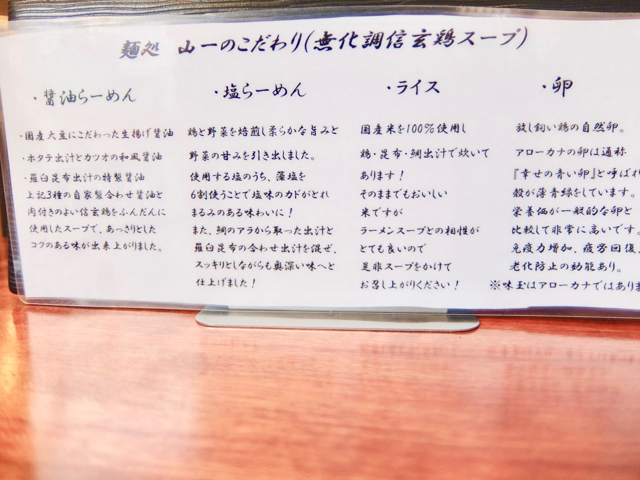 麺処 山一のこだわり(無化調信玄鶏スープ)
・醤油らーめん
・国産大豆にこだわった生揚げ醤油
・ホタテ出汁とカツオの和風醤油
・羅臼昆布出汁の特製醤油
上記3種の自家製合わせ醤油と
肉付きのよい信玄鶏をふんだんに
使用したスープで、あっさりとした
コクのある味が出来上がりました。
・塩らーめん
鶏と野菜を焙煎し柔らかな旨みと
野菜の甘みを引き出しました。
使用する塩のうち、藻塩を
6割使うことで塩味のカドがとれ
まるみのある味わいに!
また、鯛のアラから取った出汁と
羅臼昆布の合わせ出汁を混ぜ、
スッキリとしながらも奥深い味へと
仕上げました!
・ライス
国産米を100%使用し
鶏・昆布・鯛出汁で炊いて
あります!
そのままでもおいしい
米ですが
ラーメンスープとの相性が
とても良いので
是非スープをかけて
お召し上がりください!
・卵
放し飼い鶏の自然卵。
アローカナの卵は通称
『幸せの青い卵』と呼ばれ
殻が薄青緑をしています。
栄養価が一般的な卵と
比較して非常に高いです。
免疫力増加、疲労回復、
老化防止の効能あり。
※味玉はアローカナではありま